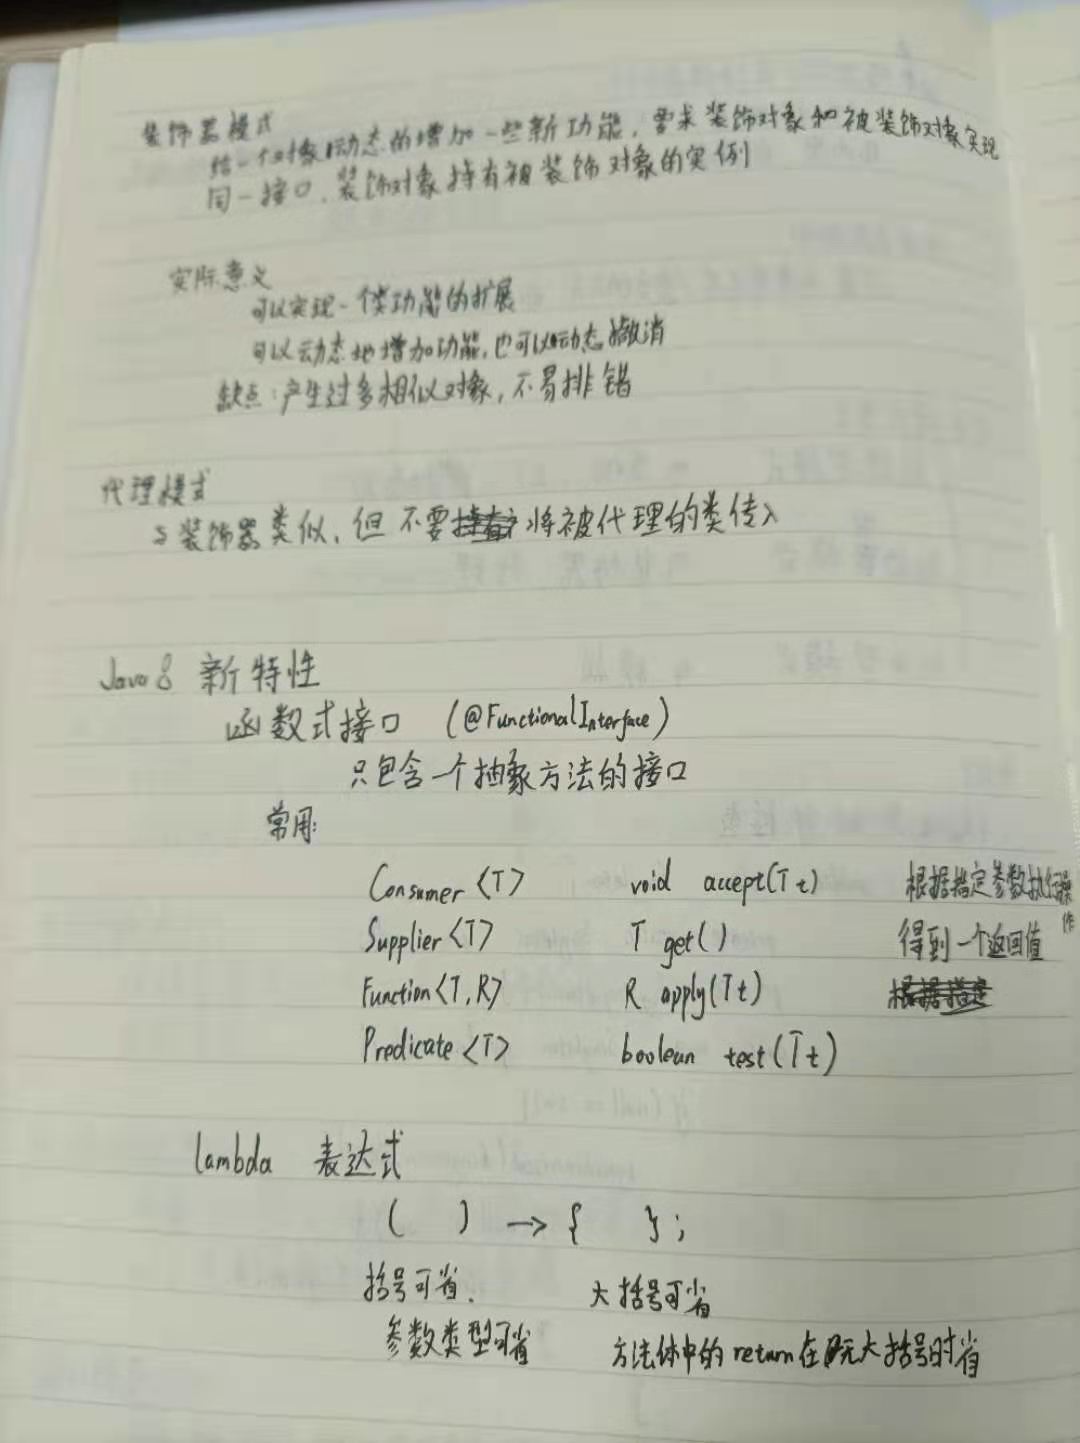 装饰器模式
给一个对象动态的增加一些新功能，要求装饰对象和被装饰对象实现
同一接口，装饰对象持有被装饰对象的实例
实际意义
可以实现一个类功能的扩展
可以动态地增加功能，也可以动态撤消
缺点：产生过多相似对象，不易排错
代理模式
与装饰器类似，但不要将被代理的类传入
Java8 新特性
函数式接口 (@FunctionalInterface)
只包含一个抽象方法的接口
常用:
Consumer<T> void accept(T t) 根据指定参数执行操作
Supplier<T> T get() 得到一个返回值
Function<T,R> R apply(T t) 根据指定
Predicate<T> boolean test(T t)
lambda 表达式
( ) → { };
括号可省. 大括号可省
参数类型可省 方法体中的return在无大括号时省